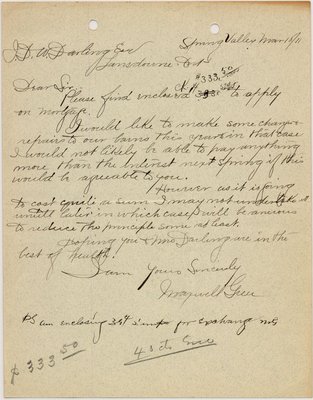 Spring Valley Mar 18/11
J. D. W. Darling Esq
Lansdowne. Ont
Dear Sir
Please find enclosed $333.50 to apply
on mortgage.
I would like to make some changes
repairs to our barns this year in that case
I would not likely be able to pay anything
more than the Interest next Spring if this
would be agreeable to you.
However as it is going
to cost quite a sum I may not undertake it
until later in which case I will be anxious
to reduce the principle some at least.
Hoping you & Mrs Darling are in the
best of health.
I am Yours Sincerely
Maxwell
PS am enclosing for exchange
$333.50
40 cts